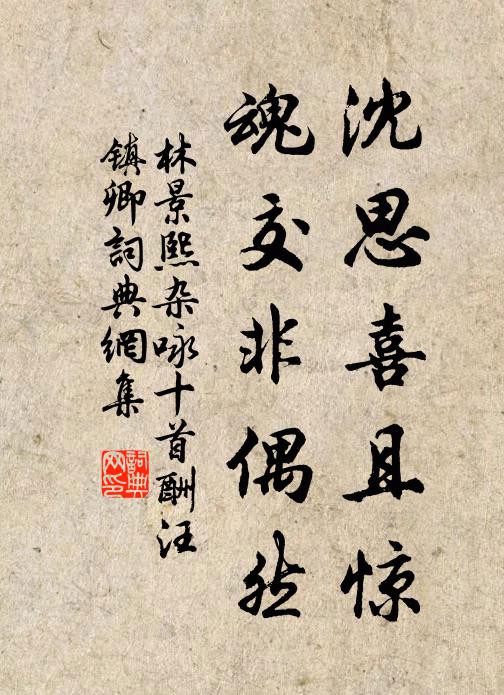 沈思喜且惊
魂交非偶然
林景熙杂咏十首酬汪
镇卿词典網集
詞典
网印